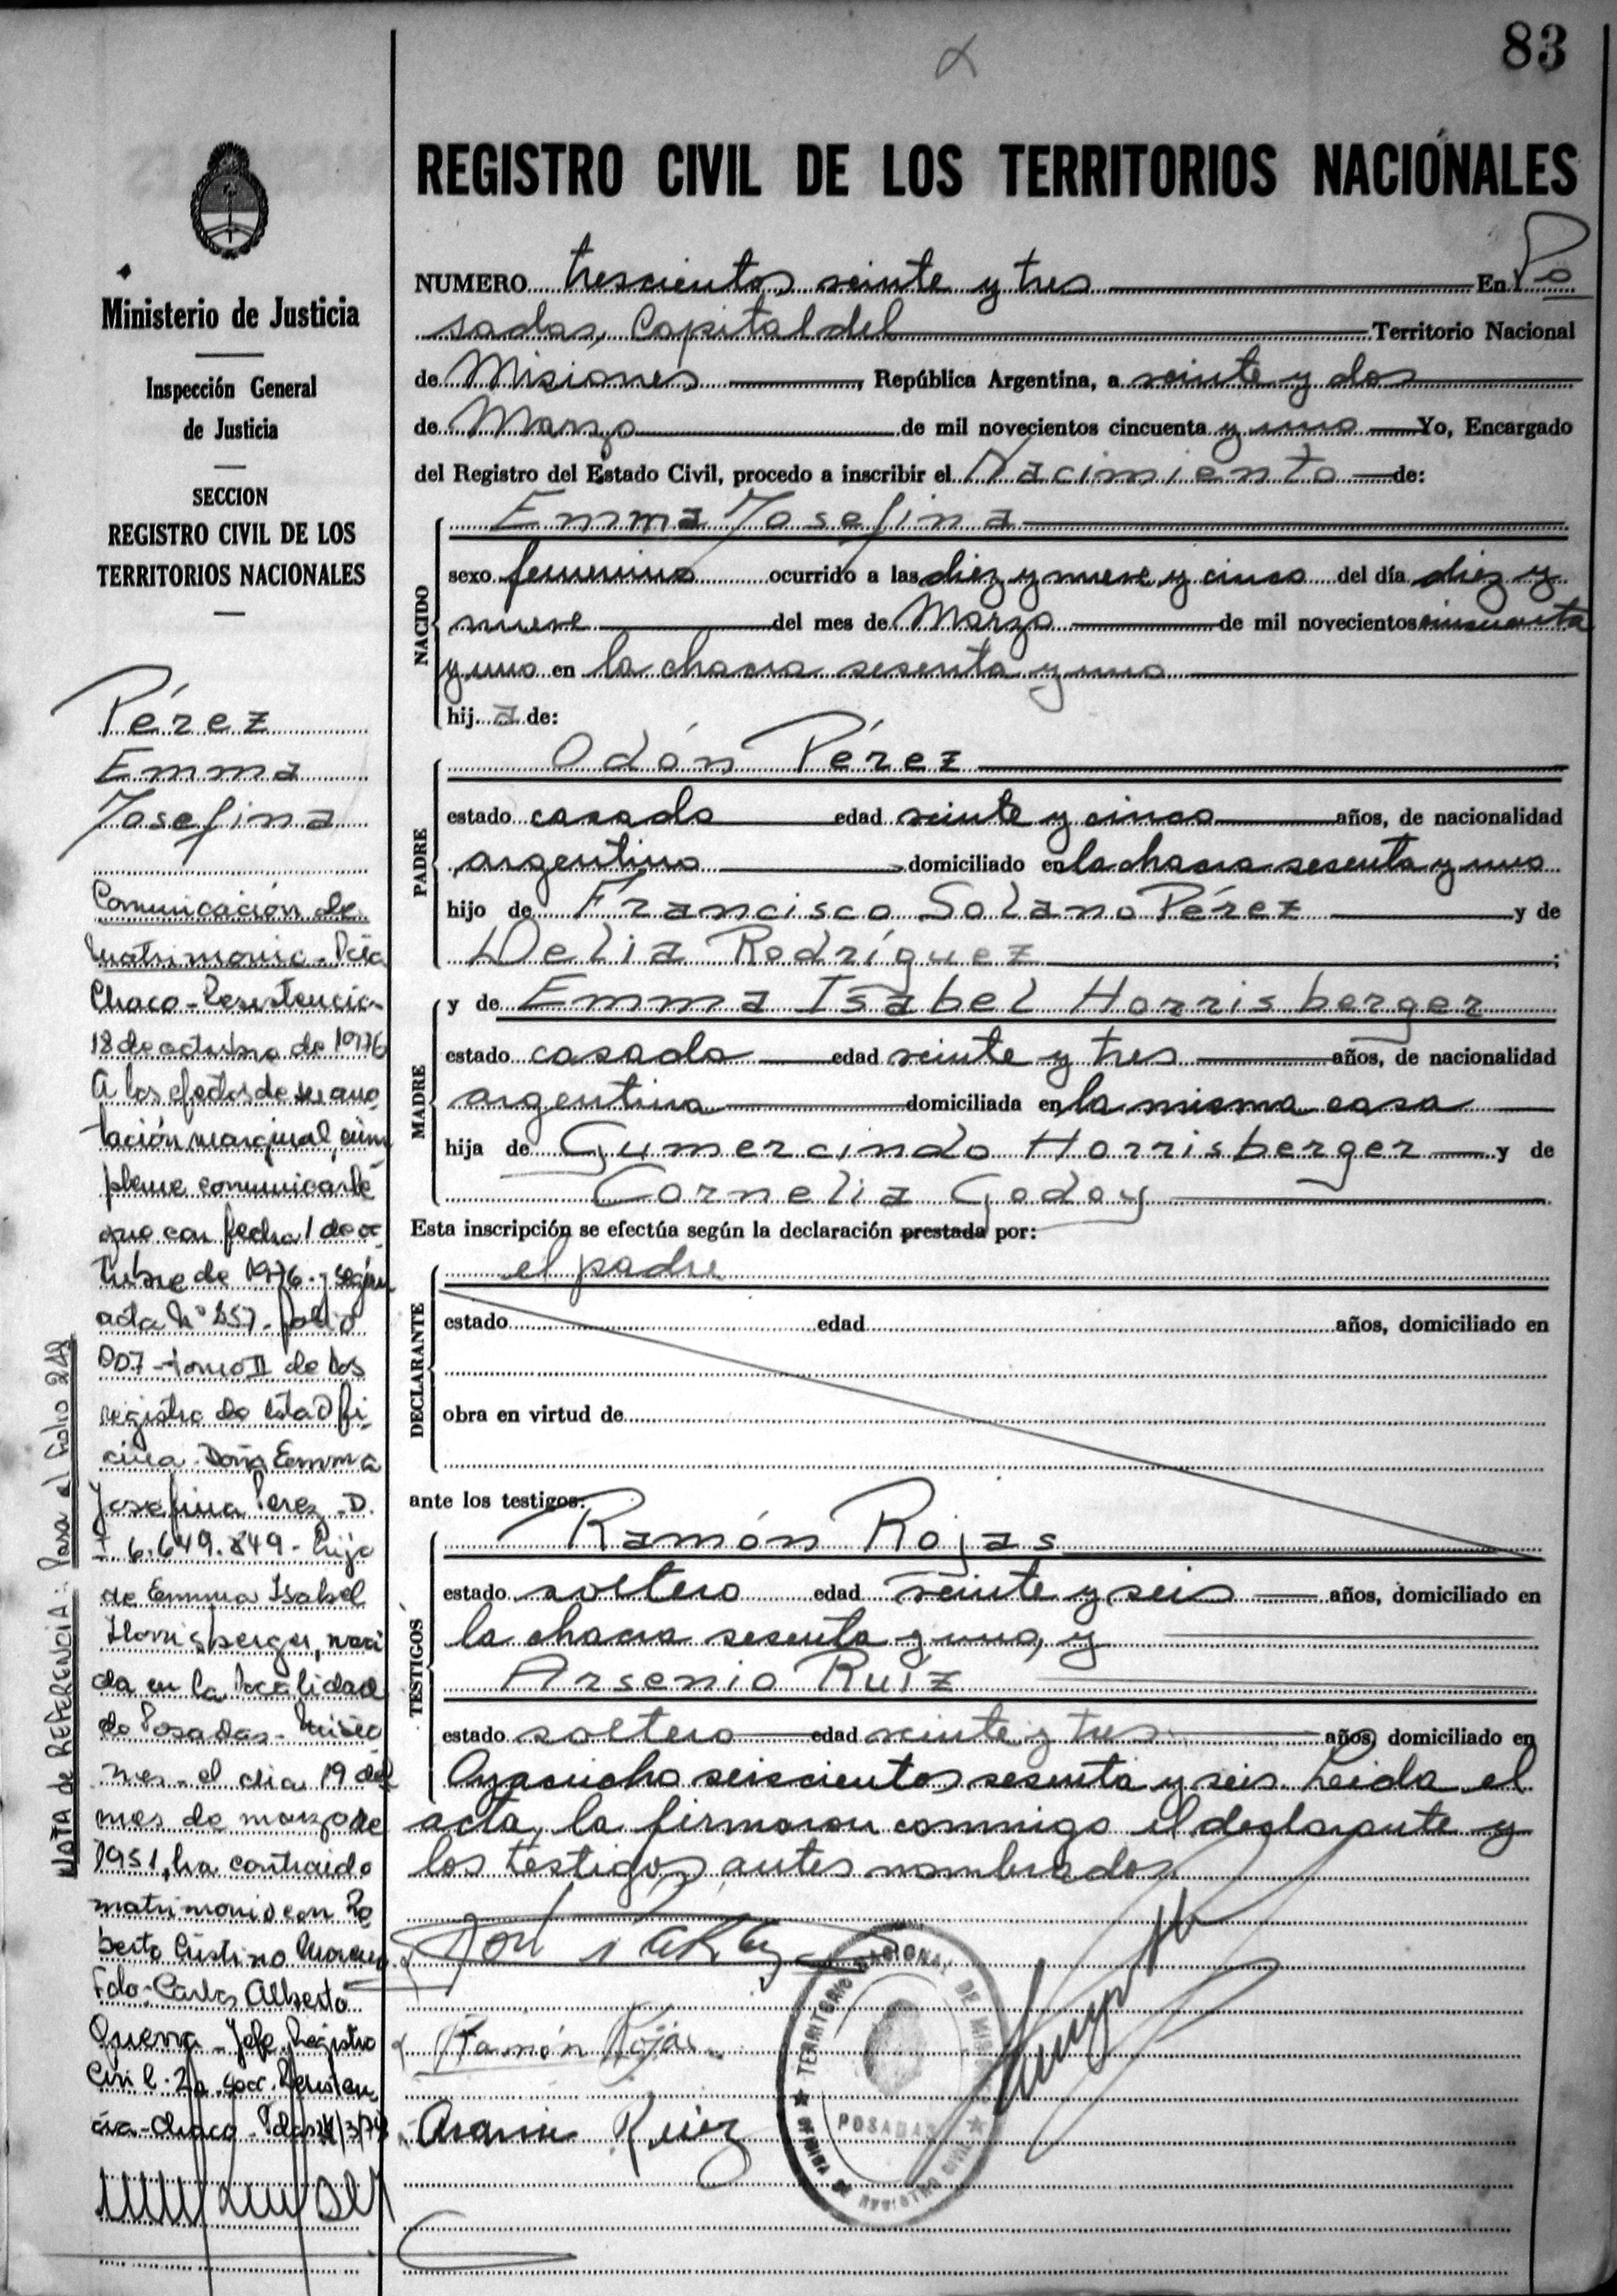 83
REGISTRO CIVIL DE LOS TERRITORIOS NACIONALES
Ministerio de Justicia
Inspección General
de Justicia
SECCION
REGISTRO CIVIL DE LOS
TERRITORIOS NACIONALES
Pérez
Emma
Josefina
Comunicación de
Matrimonio - Pcia
Chaco - Resistencia
18 de octubre de 1976
A los efectos de su ano
tación marginal, cúm
pleme comunicarle
que con fecha 1 de oc
tubre de 1976 - según
acta Nº 457 - folio
007 - tomo II de los
registro de esta Ofi
cina - Doña Emma
Josefina Perez - D.
I 6.649.849 - hija
de Emma Isabel
Horrisberger, naci
da en la localidad
de Posadas - Misio
nes - el dia 19 del
mes de marzo de
1951, ha contraido
matrimonio con Ro
berto Cristino
Fdo: Carlos Alberto
Guerra - Jefe Registro
Civil - 2a secc. Resisten
cia - Chaco -
NOTA de REFERENCIA: Pasa al folio 249
NUMERO trescientos veinte y tres En Po
sadas, Capital del Territorio Nacional
de Misiones, República Argentina, a veinte y dos
de Marzo de mil novecientos cincuenta y uno Yo, Encargado
del Registro del Estado Civil, procedo a inscribir el Nacimiento de:
NACIDO
Emma Josefina
sexo femenino ocurrido a las diez y nueve y cinco del día diez y
nueve del mes de Marzo de mil novecientos cincuenta
y uno en la chacra sesenta y uno
hija de:
PADRE
Odón Pérez
estado casado edad veinte y cinco años, de nacionalidad
argentino domiciliado en la chacra sesenta y uno
hijo de Francisco Solano Pérez y de
Delia Rodríguez;
MADRE
y de Emma Isabel Horrisberger
estado casada edad veinte y tres años, de nacionalidad
argentina domiciliada en la misma casa
hija de Gumercindo Horrisberger y de
Cornelia Godoy
Esta inscripción se efectúa según la declaración prestada por:
DECLARANTE
el padre
estado edad años, domiciliado en
obra en virtud de
ante los testigos:
TESTIGOS
Ramón Rojas
estado soltero edad veinte y seis años, domiciliado en
la chacra sesenta y uno, y
Arsenio Ruiz
estado soltero edad veinte y tres años, domiciliado en
Ayacucho seiscientos sesenta y seis. Leida el
acta, la firmaron conmigo el declarante y
los testigos antes nombrados
Ramón Rojas
Arsenio Ruiz
TERRITORIO NACIONAL DE MISIONES
POSADAS
OFICINA DE REGISTRO CIVIL